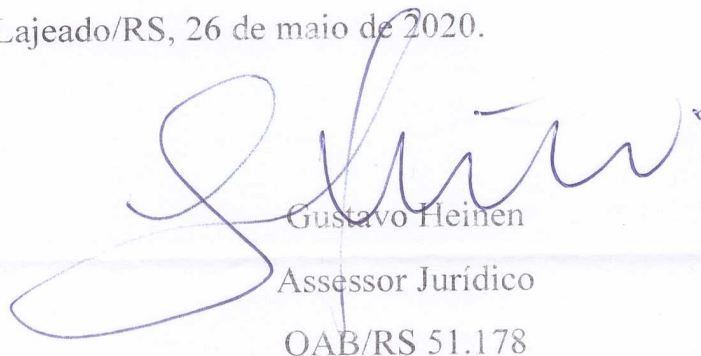 Lajeado/RS, 26 de maio de 2020.
Gustavo Heinen
Assessor Jurídico
OAB/RS 51.178